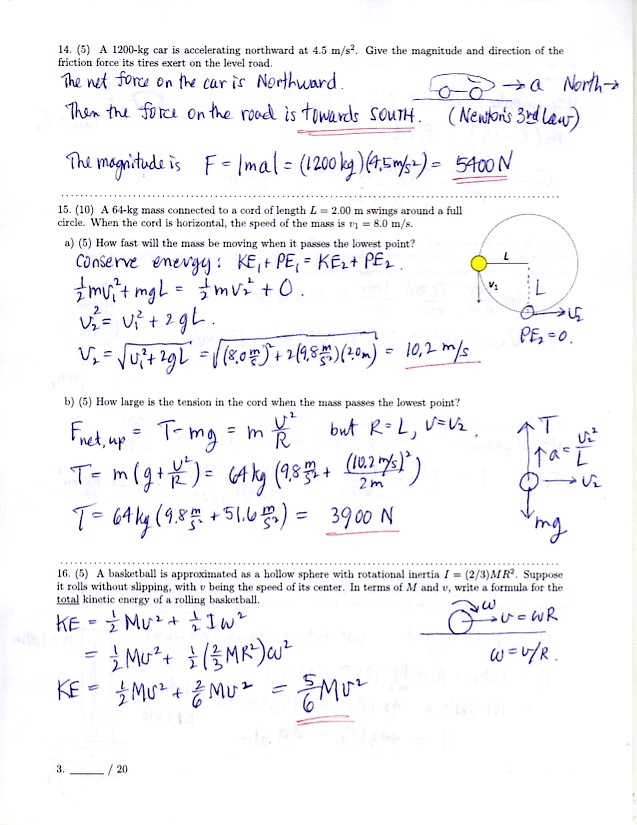 14. (5) A 1200-kg car is accelerating northward at 4.5 m/s². Give the magnitude and direction of the
friction force its tires exert on the level road.
The net force on the car is Northward.
→ a North→
Then the force on the road is towards SOUTH. (Newton's 3rd Law)
The magnitude is F = |ma| = (1200 kg)(4.5 m/s²) = 5400 N
15. (10) A 64-kg mass connected to a cord of length L = 2.00 m swings around a full
circle. When the cord is horizontal, the speed of the mass is v₁ = 8.0 m/s.
a) (5) How fast will the mass be moving when it passes the lowest point?
Conserve energy: KE₁ + PE₁ = KE₂ + PE₂.
L
v₁
L
½mv₁² + mgL = ½mv₂² + 0.
v₂
v₂² = v₁² + 2gL.
PE₂=0.
v₂ = √(v₁²+2gL) = √((8.0 m/s)² + 2(9.8 m/s²)(2.0m)) = 10.2 m/s
b) (5) How large is the tension in the cord when the mass passes the lowest point?
Fnet,up = T - mg = m v²/R but R = L, v = v₂.
T
a = v₂²/L
T = m(g + v²/R) = 64 kg (9.8 m/s² + (10.2 m/s)²/2m)
v₂
T = 64 kg (9.8 m/s² + 51.6 m/s²) = 3900 N
mg
16. (5) A basketball is approximated as a hollow sphere with rotational inertia I = (2/3)MR². Suppose
it rolls without slipping, with v being the speed of its center. In terms of M and v, write a formula for the
total kinetic energy of a rolling basketball.
ω
KE = ½Mv² + ½Iω²
v = ωR
= ½Mv² + ½(⅔MR²)ω²
ω = v/R.
KE = ½Mv² + 2/6 Mv² = 5/6 Mv²
3. ____ / 20